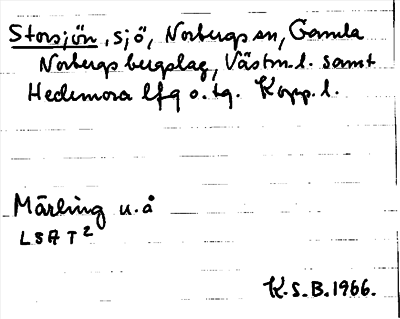 Storsjön, sjö, Norbergs sn, Gamla
Norbergs bergslag, Västm.l. samt
Hedemora lfg o. tg. Kopp.l.
Märling u.å
LSA T2
K.S.B.1966.